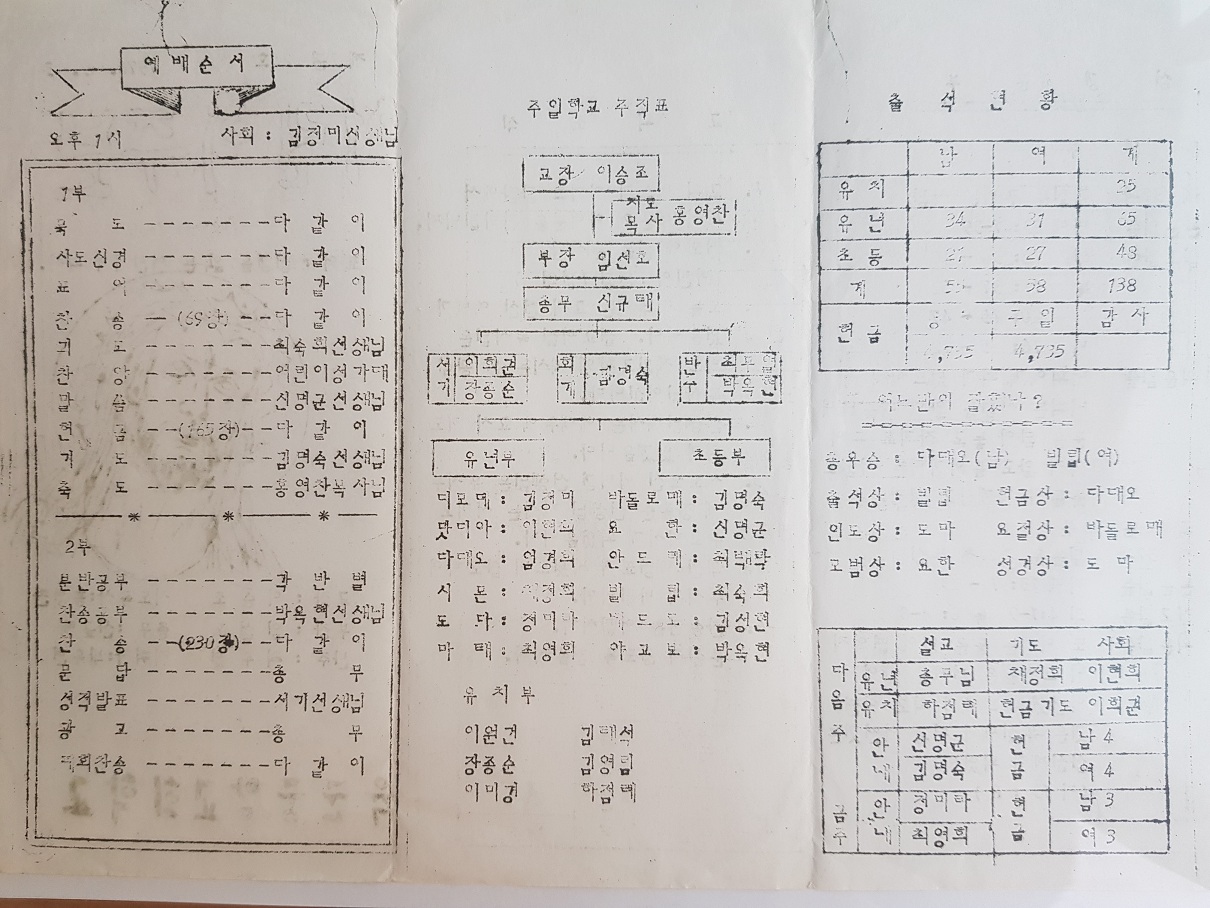 예배순서
오후 1시 사회 : 김정미선생님
1부
묵 도 -------다 같 이
사도신경 -------다 같 이
표 어 -------다 같 이
찬 송 --(69장)---다 같 이
기 도 -------최숙희선생님
찬 양 -------어린이성가대
말 씀 -------신명균선생님
헌 금 --(165장)--다 같 이
기 도 -------김명숙선생님
축 도 -------홍영찬목사님
2부
분반공부 -------각 반 별
찬송공부 -------박옥현선생님
찬 송 --(230장)--다 같 이
문 답 -------총 무
성적발표 -------서기선생님
광 고 -------총 무
폐회찬송 -------다 같 이
주일학교 조직표
교장 이승조
지도목사 홍영찬
부장 임선호
총무 신규태
서기 이희권 장종순
회계 김명숙
반주 박옥현
유년부 초등부
디모데 : 김정미 바돌로매 : 김명숙
맛디아 : 이현희 요 한 : 신명균
다대오 : 임경희 안드레 :
시 몬 : 채정희 빌 립 : 최숙희
도 마 : 정미라 베드로 : 김성현
마 태 : 최영희 야고보 : 박옥현
유 치 부
이원건 김태석
장종순 김영림
이미경 하점례
출 석 현 황
남 여 계
유 치
유 년 34 31 65
초 등 21 27 48
계 58 138
헌금 주일 감사
4,735 4,735
어느반이 잘했나?
총우승 : 다대오(남) 빌립(여)
출석상 : 빌립 헌금상 : 다대오
인도상 : 도마 요절상 : 바돌로매
모범상 : 요한 성경상 : 도마
설교 기도 사회
다음주 유년 총무님 채정희 이현희
유치 하점례 헌금기도 이희권
안내 신명균 헌금 남4
김명숙 여4
금주 안내 정미라 헌금 남3
최영희 여3